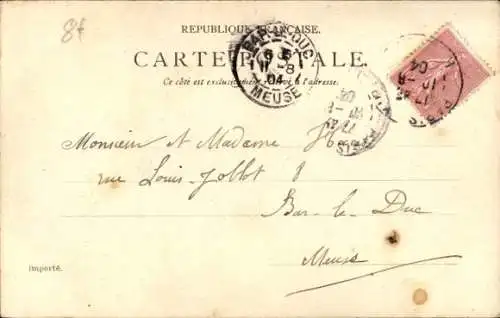 8f
REPUBLIQUE FRANÇAISE.
CARTE POSTALE.
Ce côté est exclusivement réservé à l'adresse.
BAR-LE-DUC
04
MEUSE
PARIS
04
Monsieur et Madame
rue Louis-Jollot 8
Bar-le-Duc
Meuse
Importé.